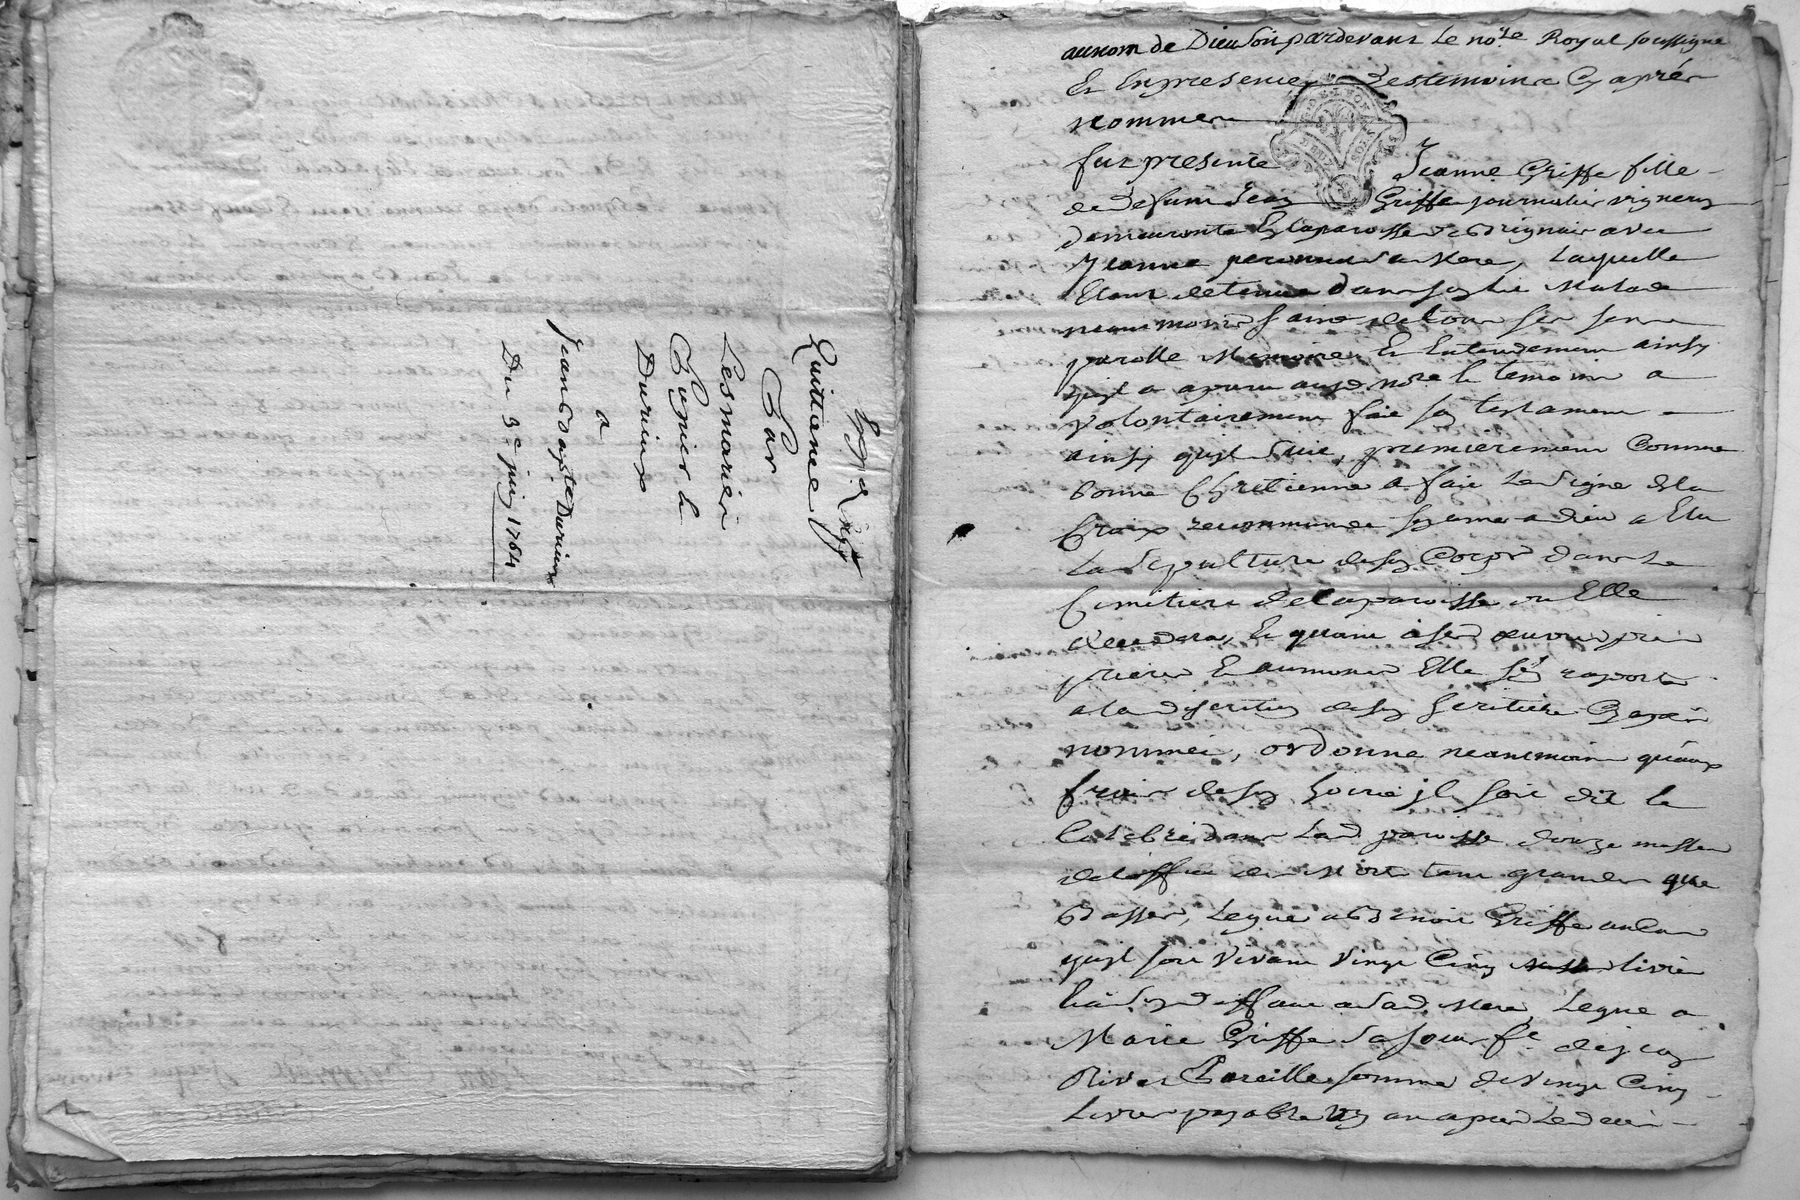 Quittance
Par
Les mariés
Cognier &
Durieux
a
Jean Baptte Durieux
Du 3e juin 1764
au nom de Dieu soit pardevant Le nore Royal soussigné
Et En presence des temoins Cy aprés
nommes
fut presente Jeanne Griffe fille
de defunt Jean Griffe journalier vigneron
demeurante En la paroisse de Brignais avec
Jeanne sa Mere, Laquelle
Etant detenue dans son lit Malade
neanmoins saine de tous ses sens
parolle Memoire, Et Entendement ainsy
quil a aparu aud nore & temoins a
volontairement fait son testament
ainsy quil suit, premierement Comme
bonne Chrétienne a fait Le signe de la
Croix, recommandé son ame a dieu a Elu
La Sepulture de son Corps dans Le
Cimitiere de la paroisse ou Elle
decedera, Et quant à ses œuvres pies
prieres Et aumones Elle s'en raporte
a la discretion de son heritiere Cy apres
nommée, ordonne neanmoins qu'aux
frais de son hoirie il soit dit &
Celebré dans Lad paroisse douze messes
de l'office des Morts tant grandes que
Basses, Legue a Benoit Griffe au Cas
quil soit vivant vingt Cinq livres
a sad Mere, Legue a
Marie Griffe sa sœur fe de jean
Rivat Pareille somme de vingt Cinq
Livres payable un an apres Le deces